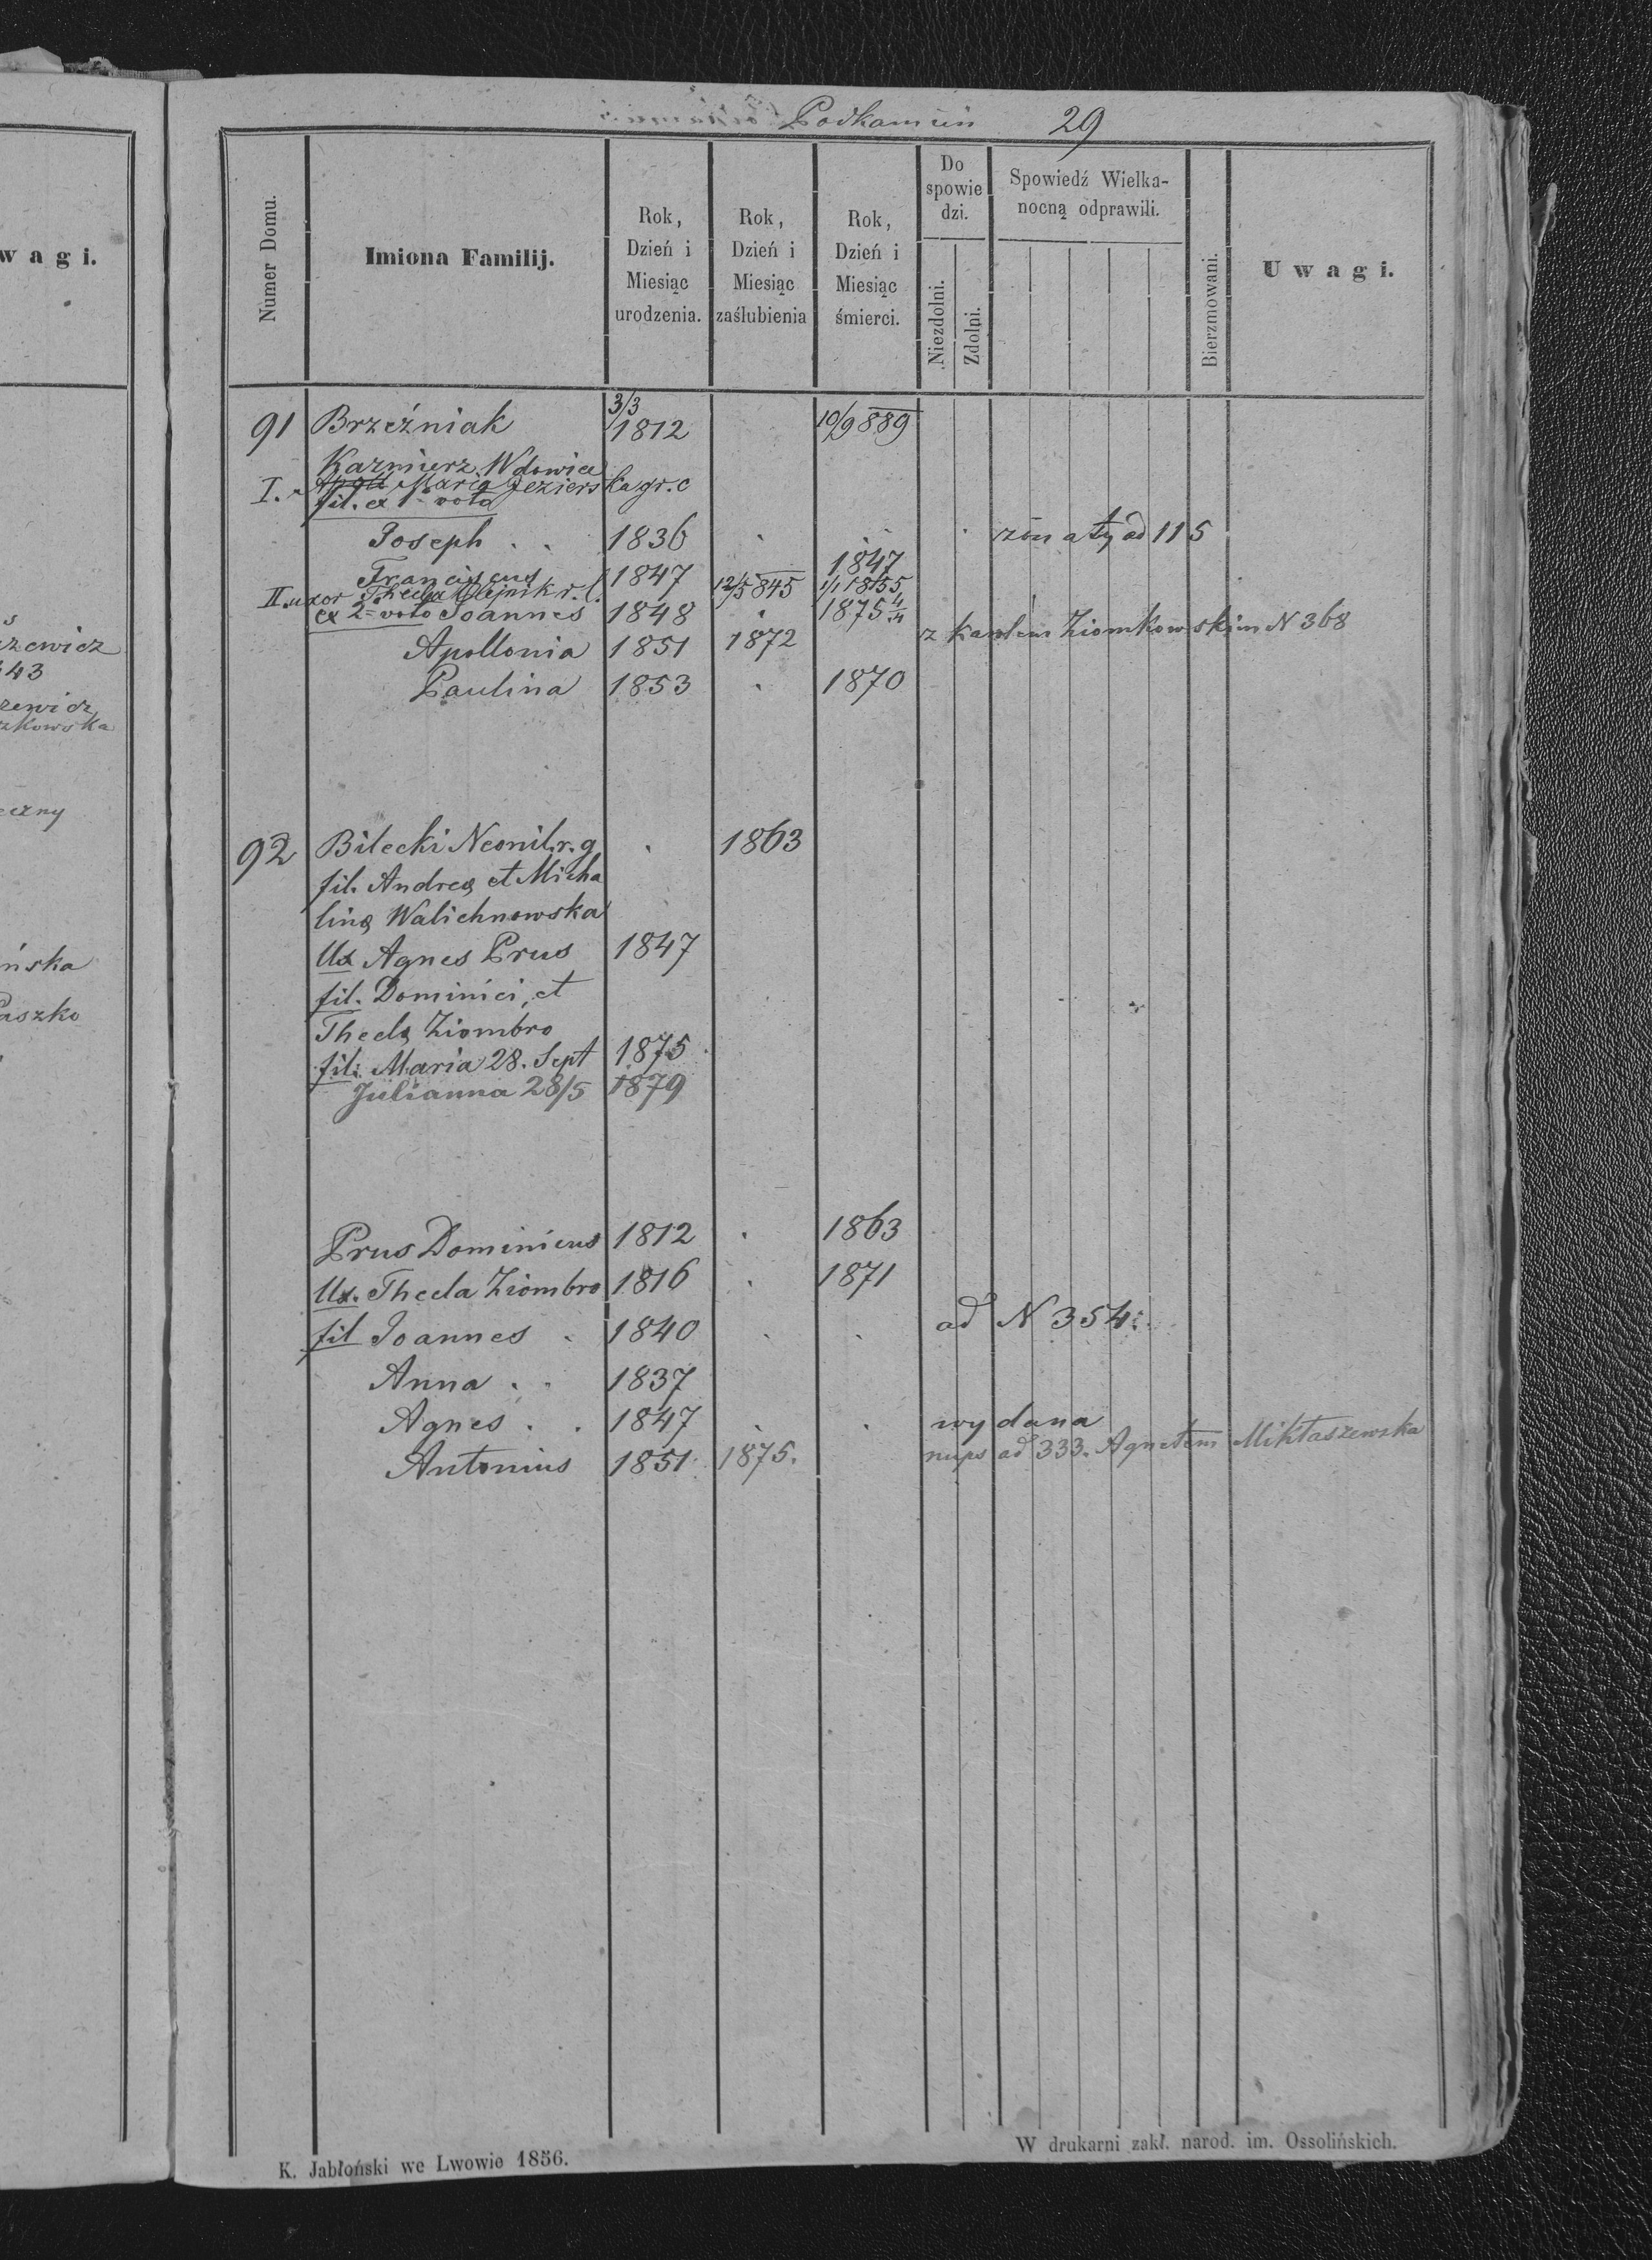 Podkamień 29
w a g i.
Numer Domu.
Imiona Familij.
Rok, Dzień i Miesiąc urodzenia.
Rok, Dzień i Miesiąc zaślubienia
Rok, Dzień i Miesiąc śmierci.
Do spowie dzi.
Niezdolni.
Zdolni.
Spowiedź Wielka-
nocną odprawili.
Bierzmowani.
U w a g i.
91 Brzeźniak 3/3 1812 10/9 889
Kazmierz Wdowiec
I. Maria Jezierska gr. c
fil. ex 1 voto
Joseph . . 1836 . . . żonaty ad 115
Franciscus 1847 1847
II. uxor Thecla Olejnik r. l. 12/5 845 1/1 1855
ex 2 voto Joannes 1848 . 1875 4/4
Apollonia 1851 1872 z Karolem Ziomkowskim N 368
Paulina 1853 . 1870
92 Bilecki Neonil. r. g . 1863
fil. Andreę et Micha
linę Walichnowska
Ux Agnes Prus 1847
fil. Dominici, et
Theclę Ziombro
fil: Maria 28. Sept 1875
Julianna 28/5 1879
Prus Dominicus 1812 . 1863
Ux. Thecla Ziombro 1816 . 1871
fil Joannes . 1840 . . ad N 354:
Anna . . 1837
Agnes . . 1847 . . wydana
Antonius 1851 1875. nups ad 333. Agnetem Miktaszewska
zewicz
43
zewicz
zkowska
eczny
ńska
Paszko
K. Jabłoński we Lwowie 1856.
W drukarni zakł. narod. im. Ossolińskich.